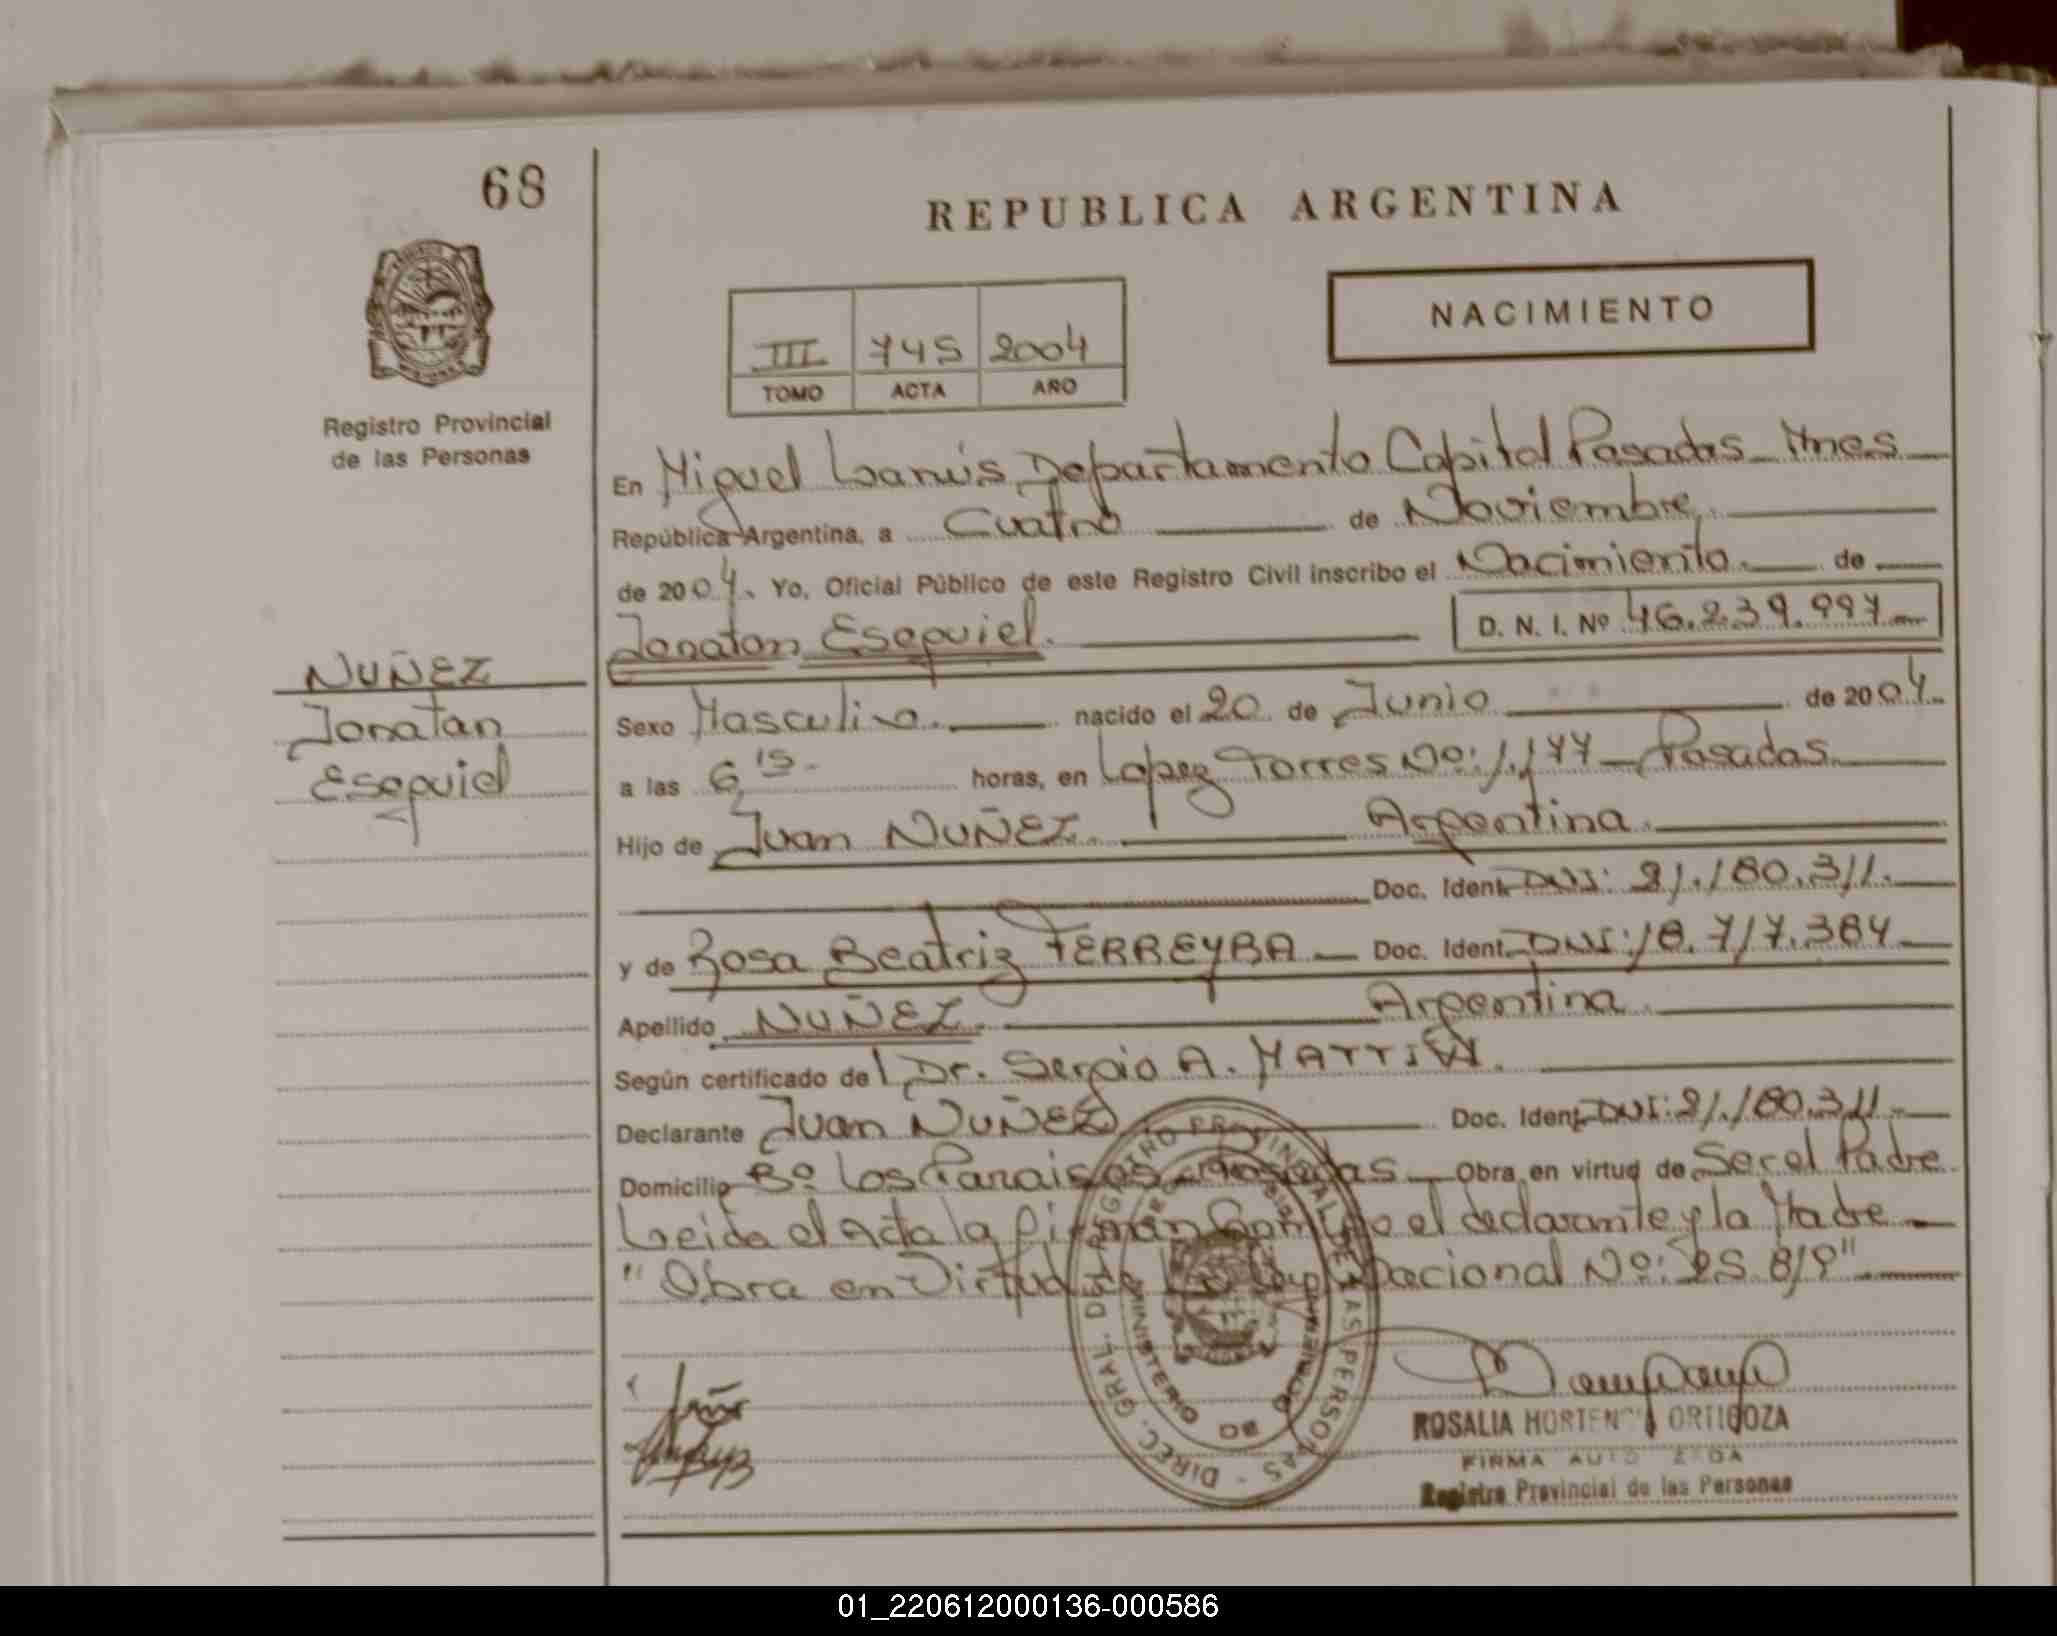 68
REPUBLICA ARGENTINA
NACIMIENTO
III 745 2004
TOMO ACTA AÑO
Registro Provincial
de las Personas
En Miguel Lanús Departamento Capital Posadas Mnes
República Argentina, a Cuatro de Noviembre
de 2004. Yo, Oficial Público de este Registro Civil inscribo el Nacimiento de
Jonatan Esequiel. D. N. I. Nº 46.239.997
NUÑEZ
Jonatan
Esequiel
Sexo Masculino. nacido el 20 de Junio de 2004
a las 6,15 horas, en Lopez Torres No: 1.177 Posadas
Hijo de Juan NUÑEZ. Argentina.
Doc. Ident. DNI: 21.180.311.
y de Rosa Beatriz FERREYRA Doc. Ident. DNI: 18.717.384
Apellido NUÑEZ. Argentina.
Según certificado del Dr. Sergio A.
Declarante Juan NUÑEZ Doc. Ident. DNI: 21.180.311
Domicilio Bº Los Paraisos Posadas Obra en virtud de Ser el Padre
Leida el acta la firman Conmigo el declarante y la Madre
"Obra en Virtud de la Ley Nacional Nº: 25.819"
DIREC. GRAL. DE REGISTRO PROVINCIAL DE LAS PERSONAS
MINISTERIO DE GOBIERNO
ROSALIA HORTENCIA ORTIGOZA
FIRMA AUTORIZADA
Registro Provincial de las Personas
01_220612000136-000586